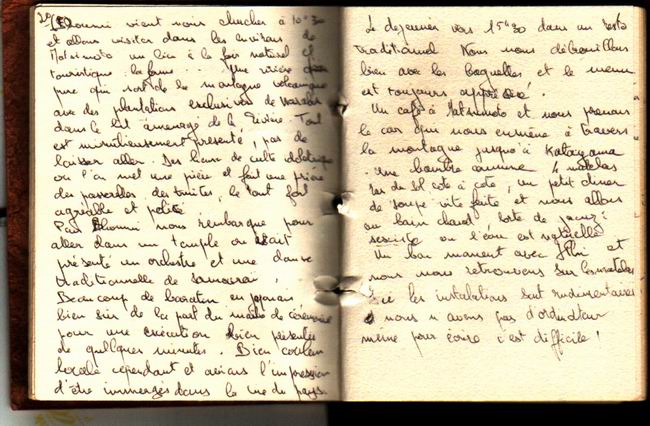 vient nous chercher à 10h30
et allons visiter dans les environs de
Matsumoto un lieu à la fois naturel et
touristique la ferme... Une rivière
pure qui sort de la montagne volcanique
avec des plantations exclusives de wasabi
dans le lit aménagé de la rivière. Tout
est minutieusement présenté, pas de
laisser aller. Des lieux de culte
où l'on met une pièce et fait une prière
des passerelles des truites, le tout fort
agréable et
Puis nous rembarque pour
aller dans un temple où était
présenté un orchestre et une danse
traditionnelle de samourai.
Beaucoup de baratin en japonais
bien sûr de la part du maître de cérémonie
pour une exécution bien
de quelques minutes. Bien couleur
locale cependant et avions l'impression
d'être immergés dans la vie du pays.
Le dejeuner vers 15h30 dans un resto
traditionnel Nous nous débrouillons
bien avec les baguettes, et le menu
est toujours apprécié.
Un café à Matsumoto et nous prenons
le car qui nous emmène à travers
la montagne jusqu'à
Une chambre commune 4 matelas
sur le sol cote à cote, un petit diner
de soupe vite faite et nous allons
au bain chaud. Sorte de
ou l'eau est naturelle
Un bon moment avec et
nous nous retrouvons sur les matelas
Ici les installations sont rudimentaires
nous n avons pas d'ordinateur
même pour écrire c'est difficile!